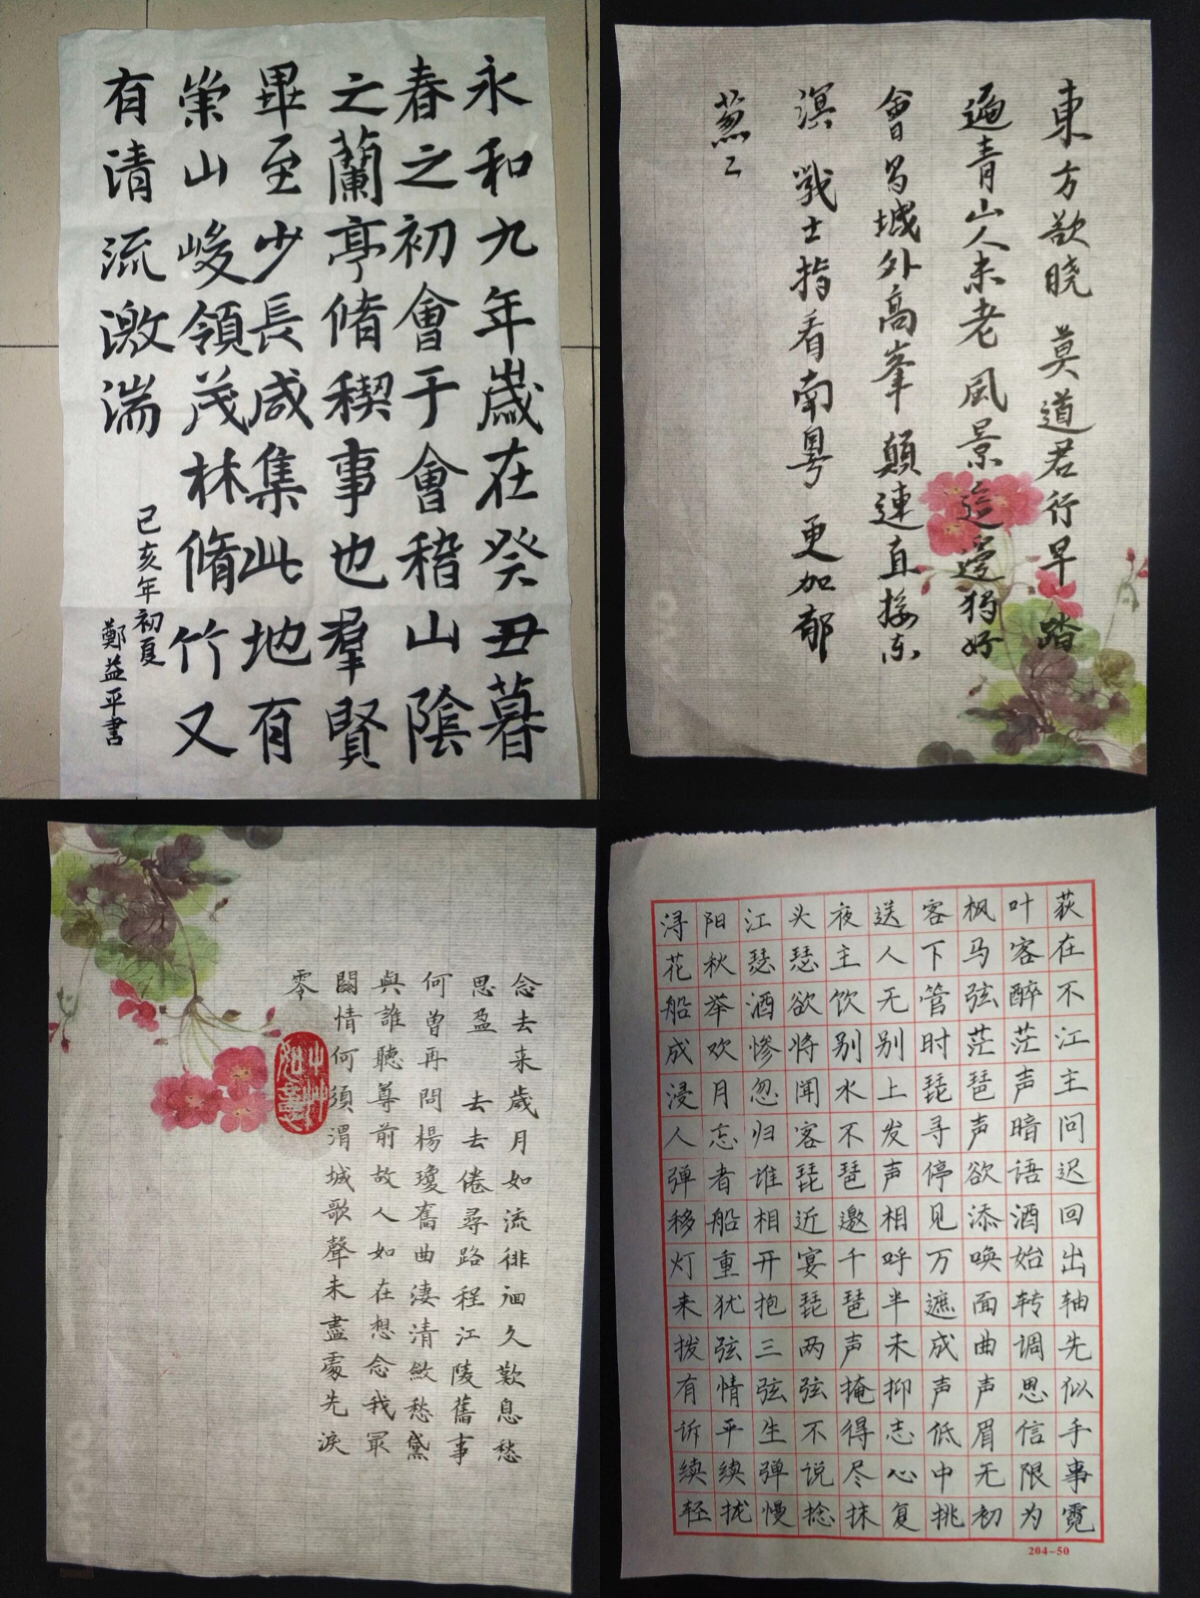 永和九年歲在癸丑暮
春之初會于會稽山陰
之蘭亭脩稧事也羣賢
畢至少長咸集此地有
崇山峻領茂林脩竹又
有清流激湍
己亥年初夏
鄭益平書
東方欲晓 莫道君行早 踏
遍青山人未老 風景這邊独好
會昌城外高峯 顛連直接东
溟 戰士指看南粤 更加郁
葱々
念去来歲月如流徘徊久歎息愁
思盈 去去倦尋路程江陵舊事
何曾再問楊瓊舊曲淒清斂愁黛
與誰聽尊前故人如在想念我最
關情何須渭城歌聲未盡處先淚
零
浔阳江头夜送客枫叶荻
花秋瑟瑟主人下马客在
船举酒欲饮无管弦醉不
成欢惨将别别时茫茫江
浸月忽闻水上琵琶声主
人忘归客不发寻声暗问
弹者谁琵琶声停欲语迟
移船相近邀相见添酒回
灯重开宴千呼万唤始出
来犹抱琵琶半遮面转轴
拨弦三两声未成曲调先
有情弦弦掩抑声声思似
诉平生不得志低眉信手
续续弹说尽心中无限事
轻拢慢捻抹复挑初为霓
204-50